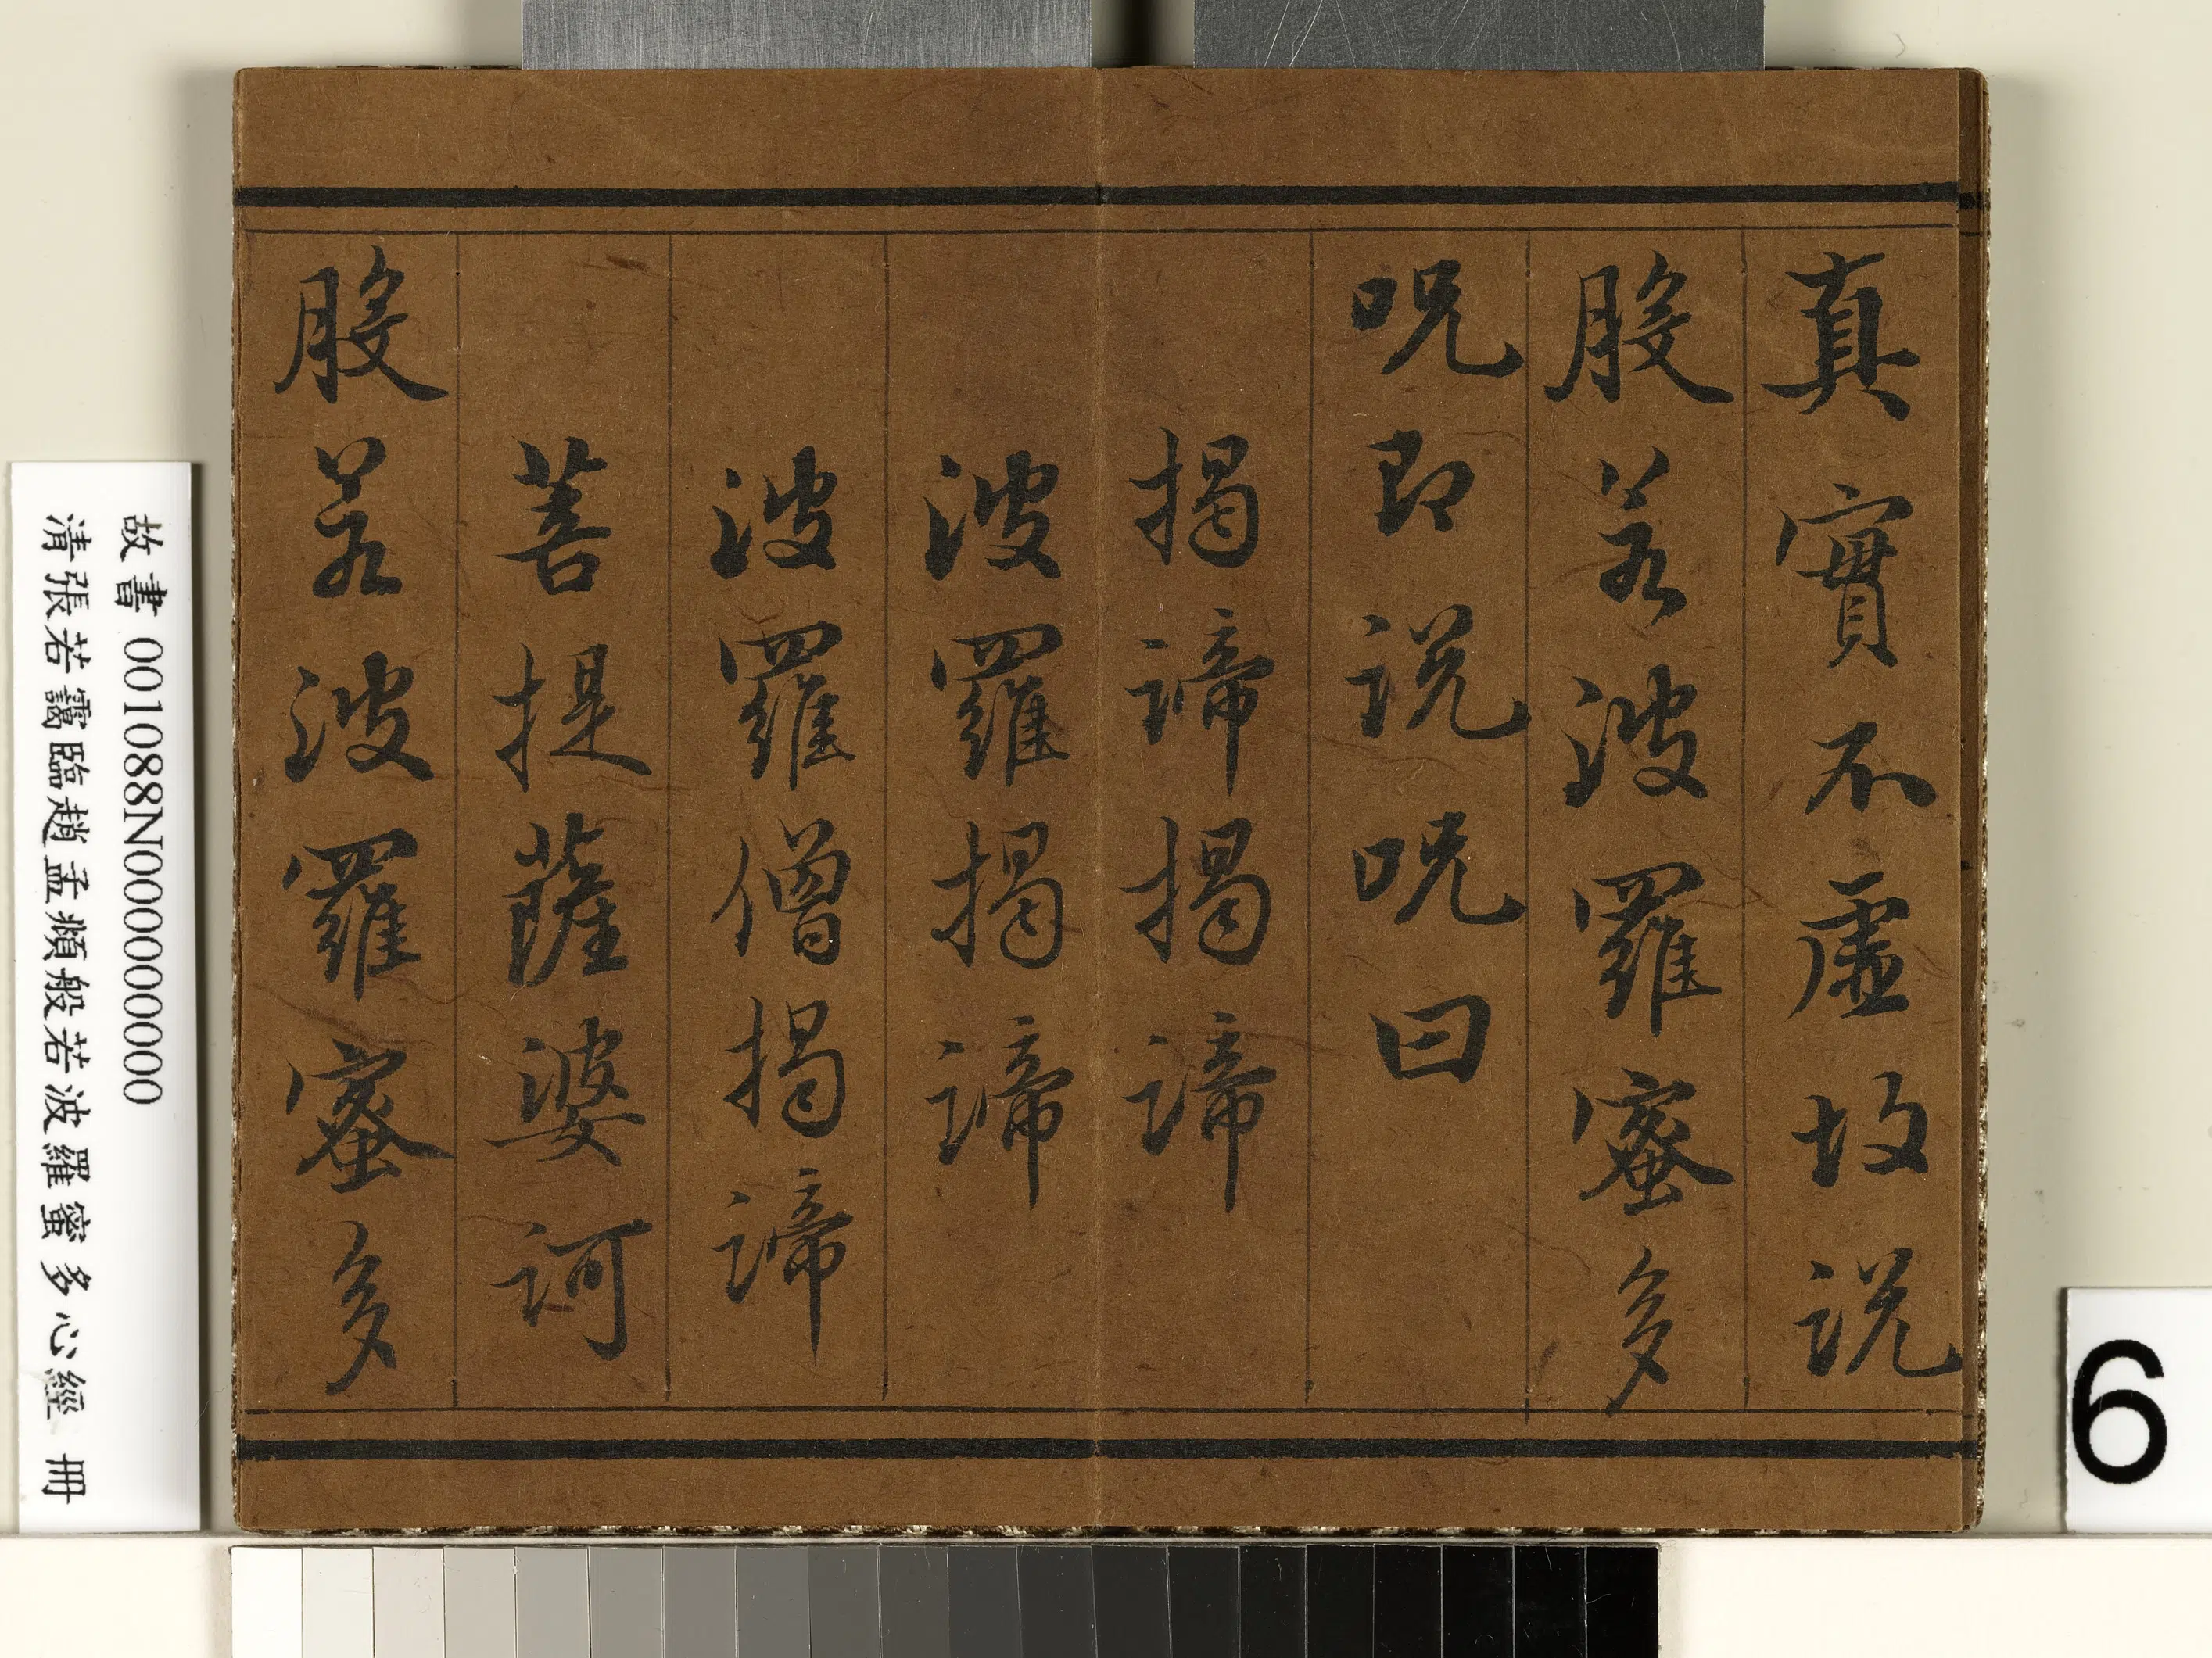 真實不虛故說
般若波羅蜜多
呪即說呪曰
揭諦揭諦
波羅揭諦
波羅僧揭諦
菩提薩婆訶
般若波羅蜜多
故書 001088N000000000
清張若靄臨趙孟頫般若波羅蜜多心經 冊
6